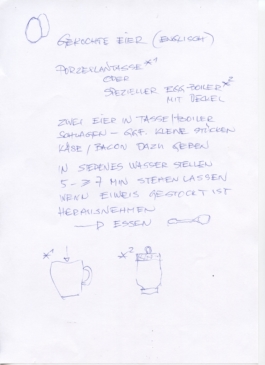 GEKOCHTE EIER (ENGLISCH)
PORZELLANTASSE *1
ODER
SPEZIELLER EGG-BOILER *2
MIT DECKEL
ZWEI EIER IN TASSE/BOILER
SCHLAGEN - GGF. KLEINE STÜCKEN
KÄSE/BACON DAZU GEBEN
IN SIEDENES WASSER STELLEN
5 - 7 MIN STEHEN LASSEN
WENN EIWEIS GESTOCKT IST
HERAUSNEHMEN
→ ESSEN
*1 *2